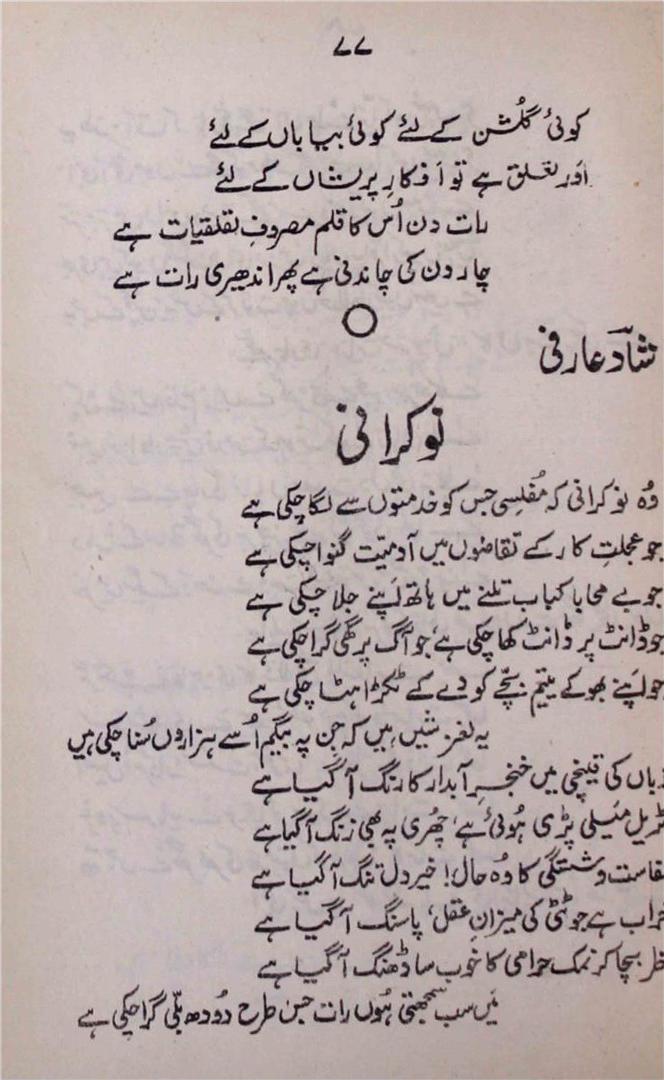 ۷۷
کوئی گلشن کے لئے کوئی بیاباں کے لئے
اور تعلق ہے تو افکارِ پریشاں کے لئے
رات دن اُس کا قلم مصروفِ تقلقیات ہے
چار دن کی چاندنی ہے پھر اندھیری رات ہے
شاد عارفی
نوکرانی
وُہ نوکرانی کہ مُفلسی جس کو خدمتوں سے لگا چکی ہے
جو عجلتِ کار کے تقاضوں میں آدمیّت گنوا چکی ہے
جو بے محابا کباب تلنے میں ہاتھ اپنے جلا چکی ہے
جو ڈانٹ پر ڈانٹ کھا چکی ہے، جو آگ پر گھی گرا چکی ہے
جو اپنے بھوکے یتیم بچّے کو دے کے ٹکڑا ہٹا چکی ہے
یہ لغزشیں ہیں کہ جن پہ بیگم اُسے ہزاروں سُنا چکی ہیں
زباں کی قینچی میں خنجرِ آبدار کا رنگ آ گیا ہے
ٹریل میلی پڑی ہُوئی ہے، چھری پہ بھی زنگ آ گیا ہے
نفاست و شستگی کا وُہ حال! خیر دل تنگ آ گیا ہے
خراب ہے جوٹٹی کی میزانِ عقل، پاسنگ آ گیا ہے
نظر بچا کر نمک حرامی کا خوب سا ڈھنگ آ گیا ہے
مَیں سب سمجھتی ہُوں رات جس طرح دُودھ بلّی گرا چکی ہے